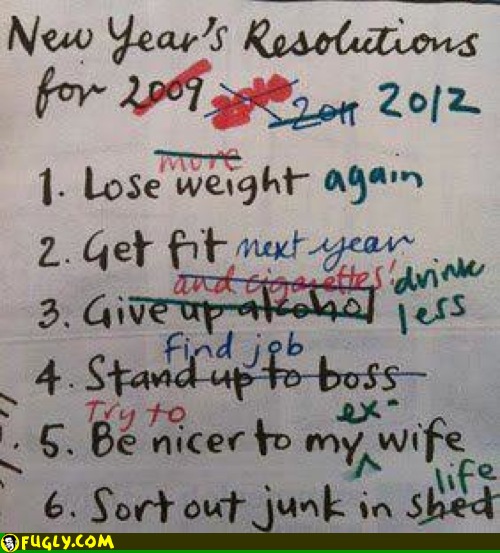 New Year's Resolutions
for 2009 2011 2012
more
1. Lose weight again
2. Get fit next year
and cigarettes' drink
3. Give up alcohol less
find job
4. Stand up to boss
Try to ex-
5. Be nicer to my wife
life
6. Sort out junk in shed
FUGLY.COM